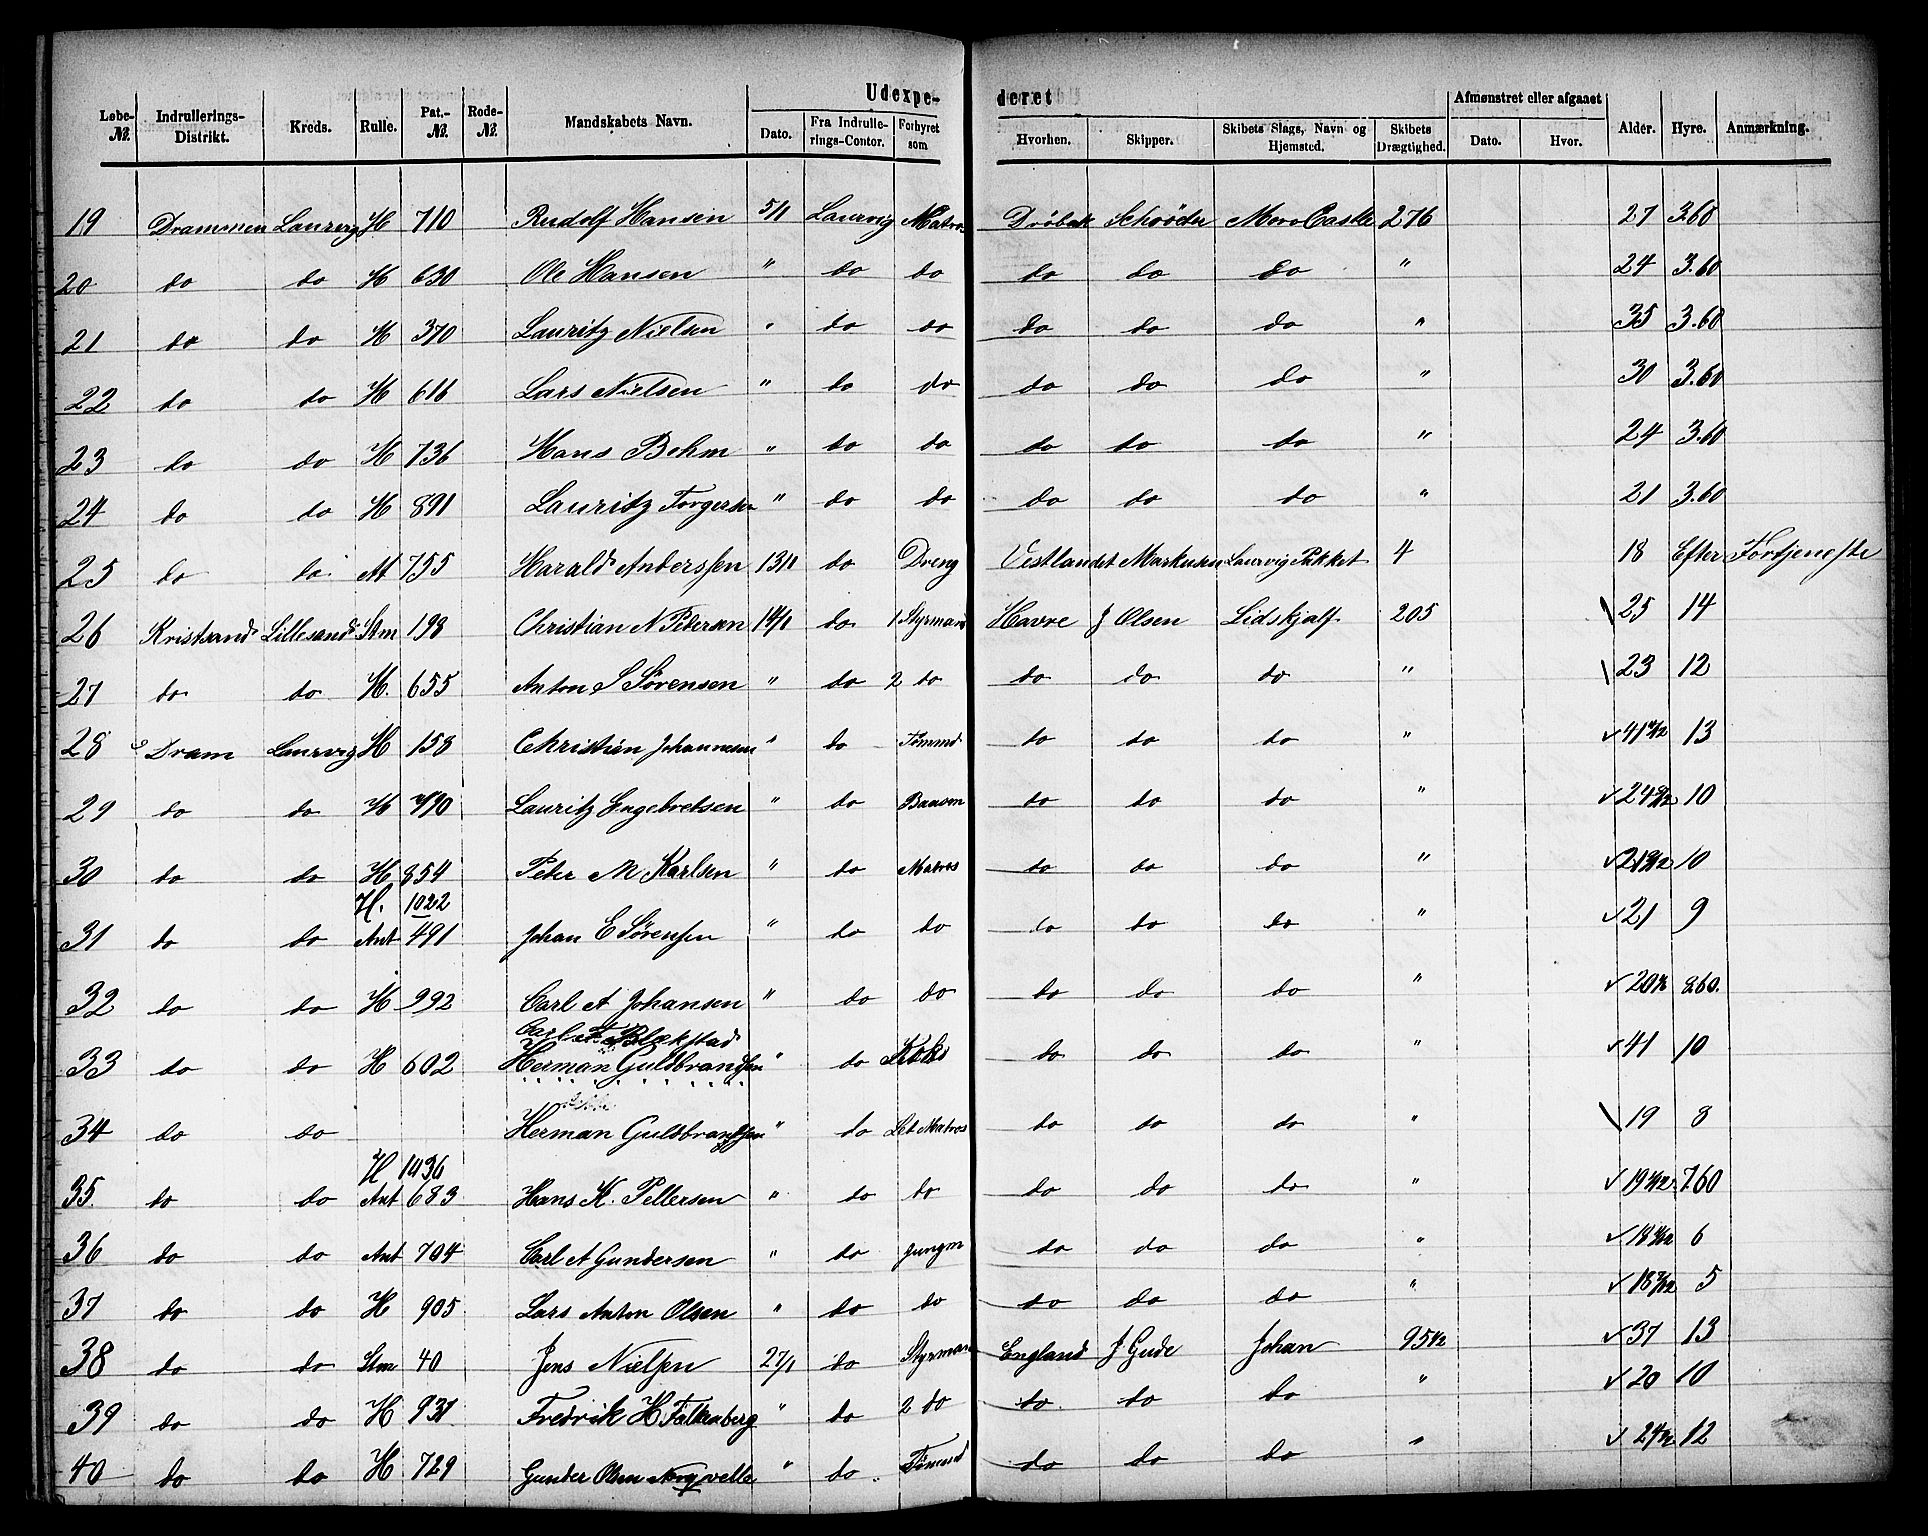 Udexpederet
Løbe-№. Indrullerings-Distrikt. Kreds. Rulle. Pat.-№. Rode-№. Mandskabets Navn. Dato. Fra Indrullerings-Contor. Forhyret som Hvorhen. Skipper. Skibets Slags, Navn og Hjemsted. Skibets Drægtighed. Afmønstret eller afgaaet Dato. Hvor. Alder. Hyre. Anmærkning.
19 Drammen Laurvig H 710 Rudolf Hansen 5/1 Laurvig Matros Drøbak Schrøder Moro Castle 276 27 3.60
20 do do H 630 Ole Hansen " do do do do do " 24 3.60
21 do do H 370 Lauritz Nielsen " do do do do do " 35 3.60
22 do do H 616 Lars Nielsen " do do do do do " 30 3.60
23 do do H 736 Hans Bohm " do do do do do " 24 3.60
24 do do H 891 Lauritz Torgersen " do do do do do " 21 3.60
25 do do At 755 Harald Anderssen 13/1 do Dreng Vestlandet Markusen Laurvig Pakket 4 18 Efter Fortjeneste
26 Kristsand Lillesand Stm 198 Christian N Pedersen 14/1 do 1 Styrmand Havre J Olsen Lidskjalf 205 \ 25 14
27 do do H. 655 Anton S Sørensen " do 2 do do do do " \ 23 12
28 Dram Laurvig H 158 Christian Johannesen " do Tømmd do do do " ✓ 41 13
29 do do H Lauritz Engebretsen " do Baasm do do do " ✓ 24 10
30 do do H 854 Peter M Karlsen " do Matros do do do " ✓ 10
H. 1022
31 do do Ant 491 Johan E Sørensen " do do do do do " ✓ 21 9
32 do do H 992 Carl A Johansen " do do do do do " ✓ 20
Carl Blekstad
33 do do H 602 Herman Guldbrandsen " do Koks do do do " ✓ 41 10
34 do do Herman Guldbrandsen " do Let Matros do do do " \ 19 8
H 1436
35. do do Ant 683 Hans K. Pettersen " do do do do do " ✓ 19 7.60
36 do do Ant 704 Carl A Gundersen " do Jungm do do do " ✓ 18 6
37 do do H 905 Lars Anton Olsen " do do do do do " ✓ 18 5
38 do do Stm 40 Jens Nielsen 27/1 do Styrmand England J Gude Johan 95½ ✓ 37 13
39 do do H 931 Fredrik H Falkenberg " do 2 do do do do " ✓ 20 10
40 do do H 729 Gunder Olsen " do Tømmd do do do " ✓ 24 12